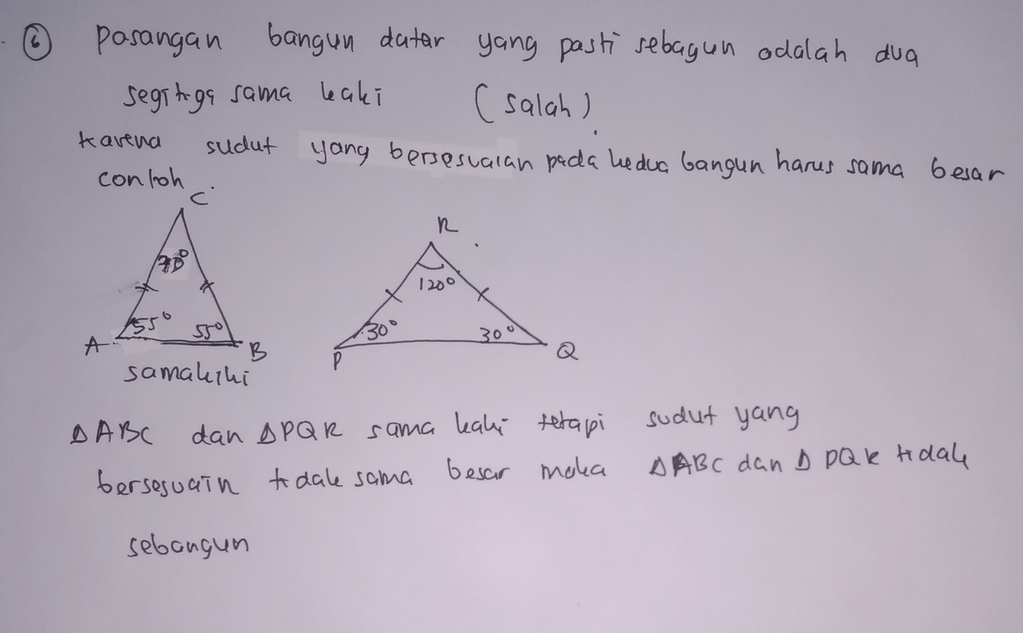 6 pasangan bangun datar yang pasti sebagun adalah dua
segitiga sama kaki (salah)
karena sudut yang bersesuaian pada kedua bangun harus sama besar
contoh
C
R
70°
120°
55° 55°
30° 30°
A B
P Q
samakiki
ΔABC dan ΔPQR sama kaki tetapi sudut yang
bersesuain tidak sama besar maka ΔABC dan Δ PQR tidak
sebangun